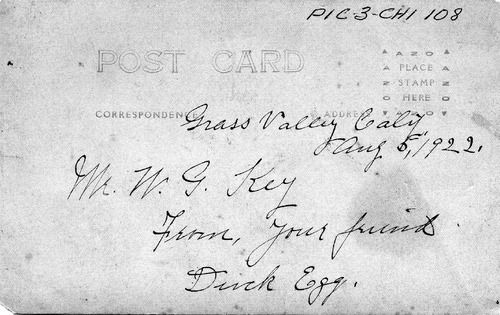 PIC-3-CHI 108
POST CARD
AZO
PLACE
STAMP
HERE
CORRESPONDENCE
ADDRESS
Grass Valley Calif.
Aug 5, 1922.
Mr. W. G. Key
From, Your friend
Duck Egg.